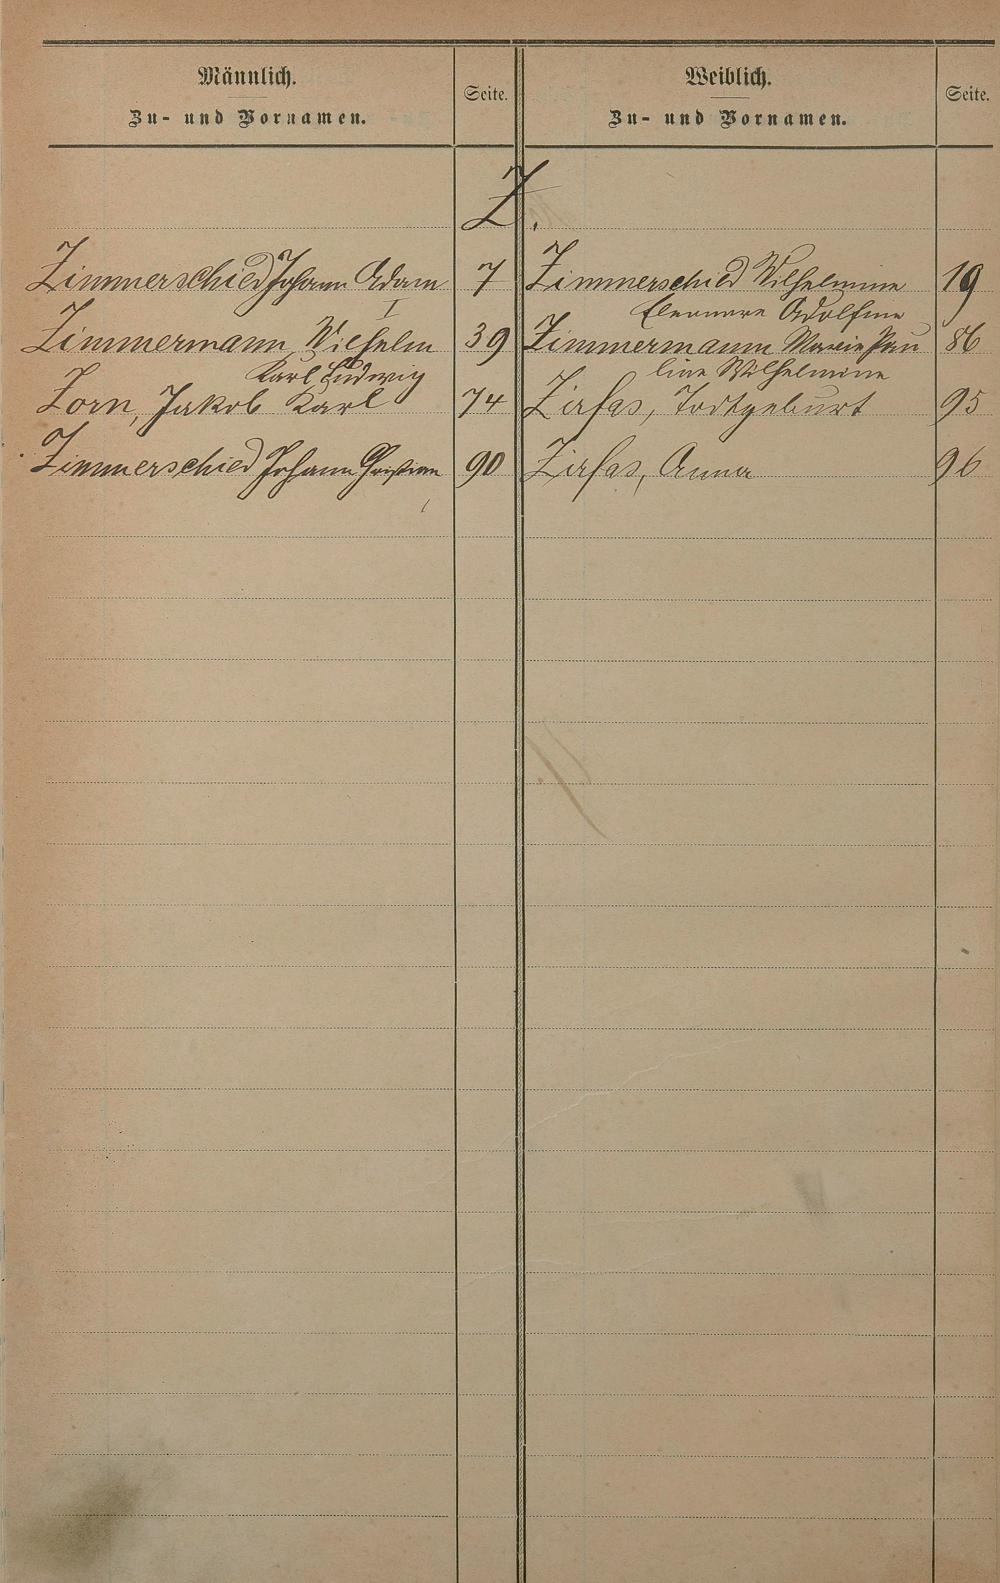 Männlich. Seite. Weiblich. Seite.
Zu- und Vornamen. Zu- und Vornamen.
Z.
Zimmerschied Johann Adam 7 Zimmerschied Wilhelmine 19
I Eleonore Adolfine
Zimmermann, Wilhelm 39 Zimmermann Marie Pau 86
Karl Ludwig line Wilhelmine
Zorn, Jakob Karl 74 Zirfas, Todtgeburt 95
Zimmerschied Johann Christian 90 Zirfas, Anna 96